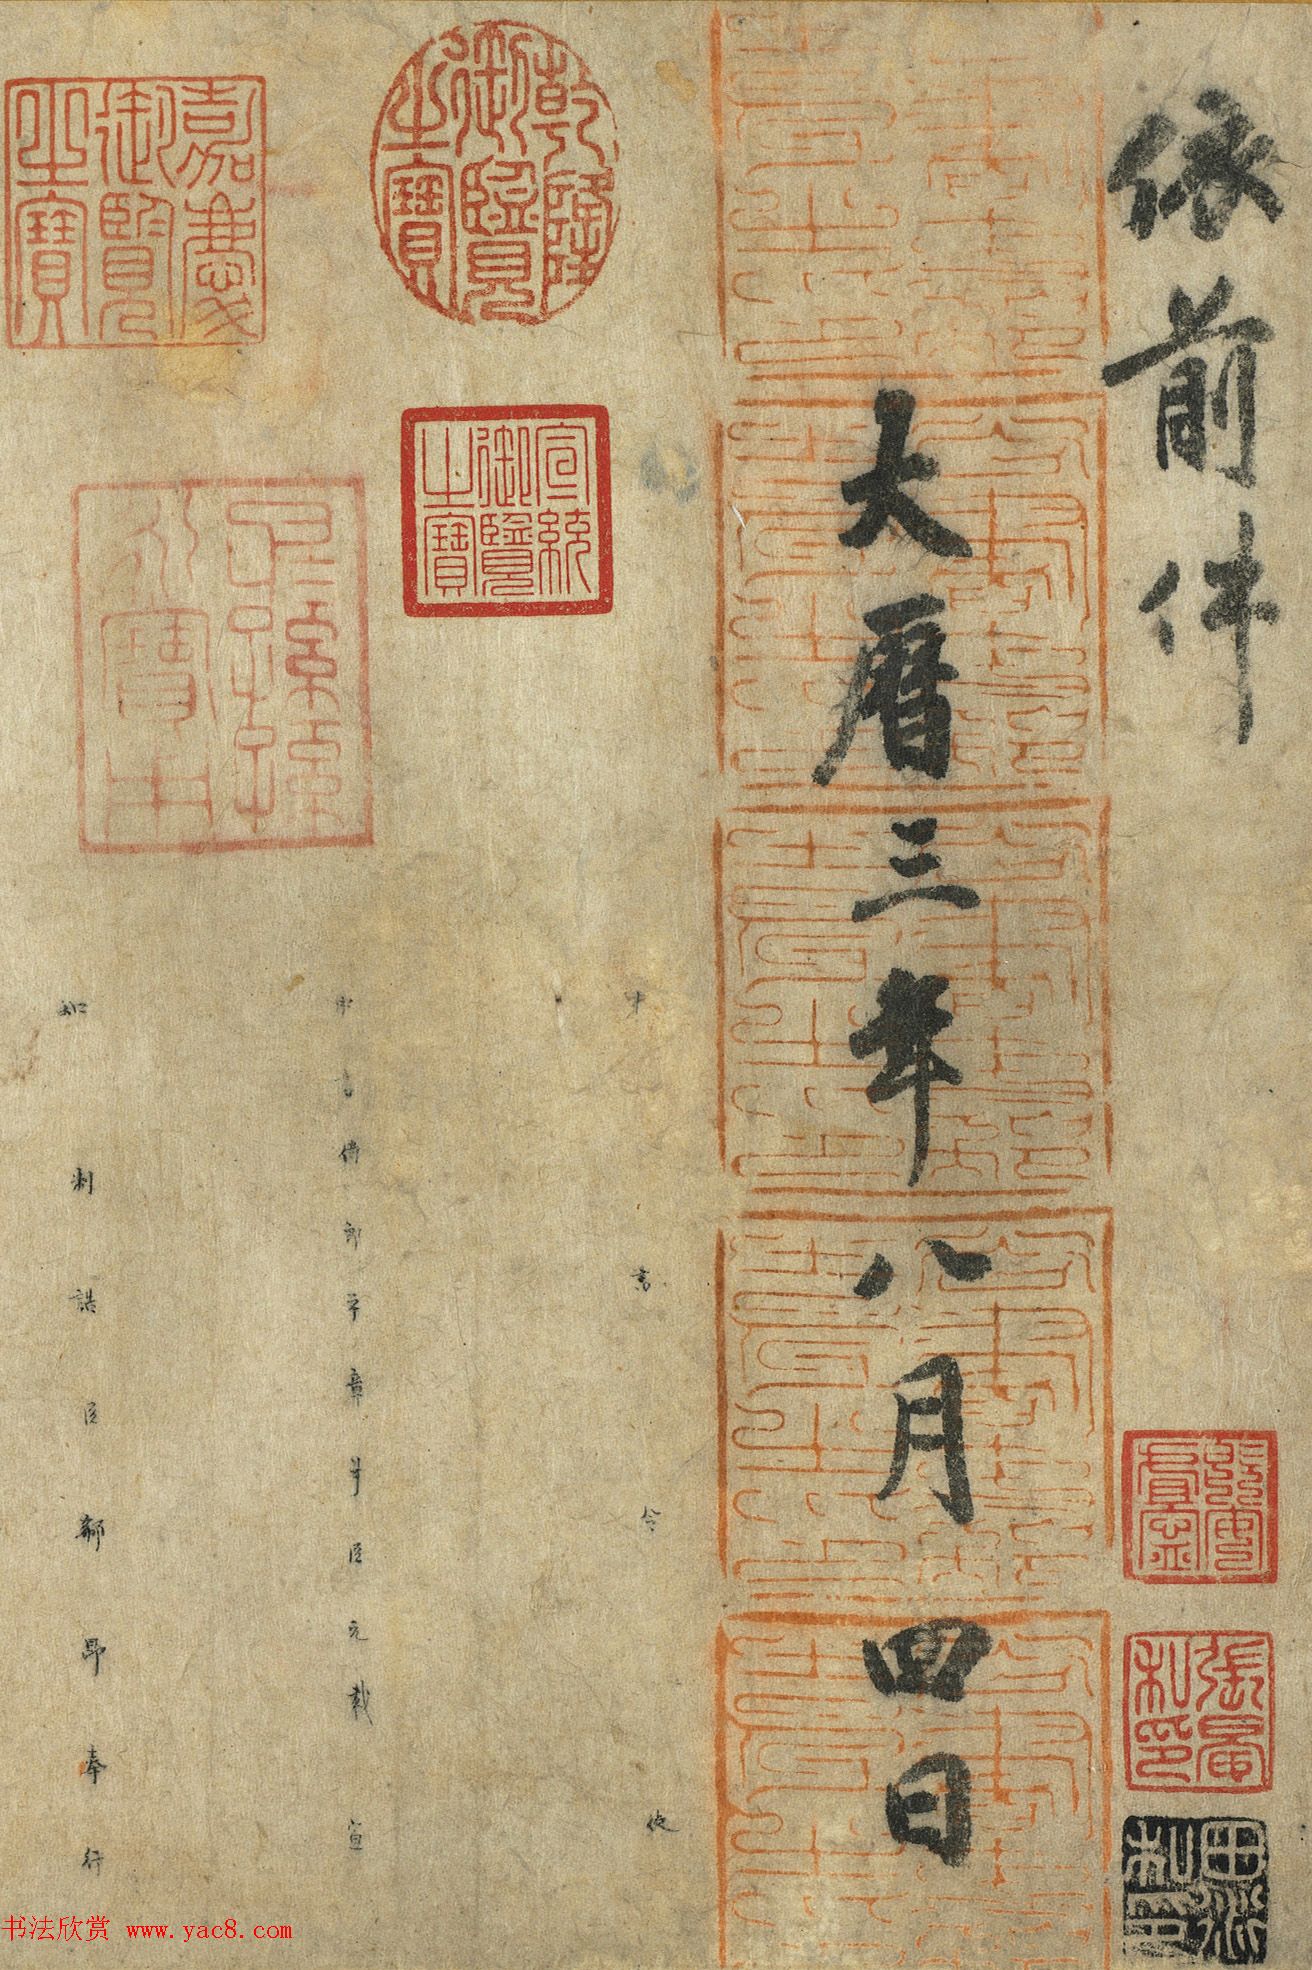 依前件
大曆三年八月四日
中書令使
中書侍郎平章事臣元載宣
知制誥臣郗昂奉行
乾隆御覽之寶
宣統御覽之寶
嘉慶御覽之寶
子孫永寶
張晏私印
书法欣赏 www.yac8.com